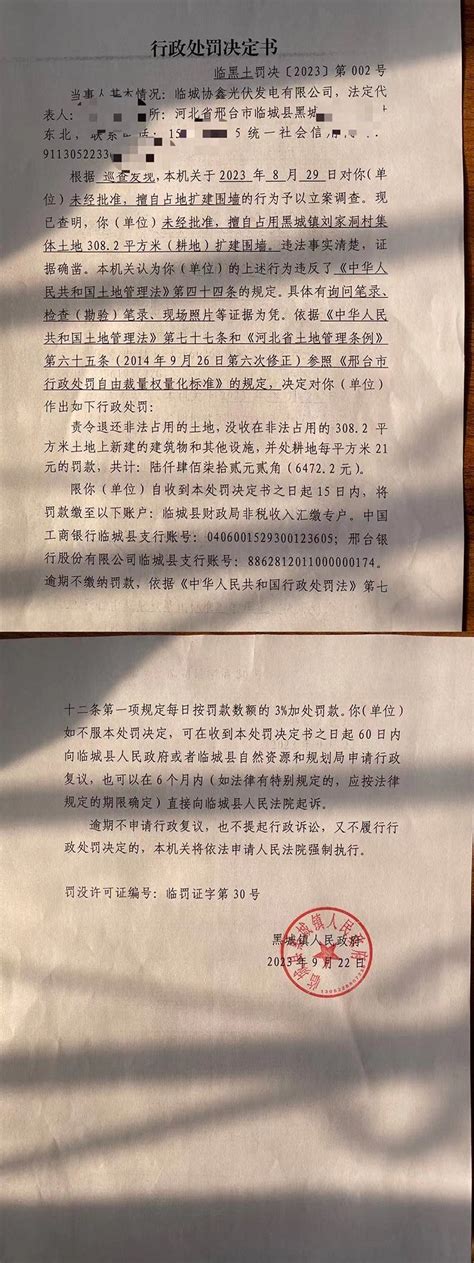 行政处罚决定书
临黑土罚决〔2023〕第 002 号
当事人基本情况：临城协鑫光伏发电有限公司，法定代
表人： 所：河北省邢台市临城县黑城
东北，联系电话：15 5 统一社会信用
9113052233
根据 巡查发现，本机关于 2023 年 8 月 29 日对你(单
位）未经批准，擅自占地扩建围墙的行为予以立案调查。现
已查明，你（单位）未经批准，擅自占用黑城镇刘家洞村集
体土地 308.2 平方米（耕地）扩建围墙。违法事实清楚，证
据确凿。本机关认为你（单位）的上述行为违反了《中华人
民共和国土地管理法》第四十四条的规定。具体有询问笔录、
检查（勘验）笔录、现场照片等证据为凭。依据《中华人民
共和国土地管理法》第七十七条和《河北省土地管理条例》
第六十五条（2014 年 9 月 26 日第六次修正）参照《邢台市
行政处罚自由裁量权量化标准》的规定，决定对你（单位）
作出如下行政处罚：
责令退还非法占用的土地，没收在非法占用的 308.2 平
方米土地上新建的建筑物和其他设施，并处耕地每平方米 21
元的罚款，共计：陆仟肆佰柒拾贰元贰角（6472.2 元）。
限你（单位）自收到本处罚决定书之日起 15 日内，将
罚款缴至以下账户：临城县财政局非税收入汇缴专户。中国
工商银行临城县支行账号：0406001529300123605；邢台银
行股份有限公司临城县支行账号：8862812011000000174。
逾期不缴纳罚款，依据《中华人民共和国行政处罚法》第七
十二条第一项规定每日按罚款数额的 3%加处罚款。你(单位)
如不服本处罚决定，可在收到本处罚决定书之日起 60 日内
向临城县人民政府或者临城县自然资源和规划局申请行政
复议，也可以在 6 个月内（如法律有特别规定的，应按法律
规定的期限确定）直接向临城县人民法院起诉。
逾期不申请行政复议，也不提起行政诉讼，又不履行行
政处罚决定的，本机关将依法申请人民法院强制执行。
罚没许可证编号：临罚证字第 30 号
黑城镇人民政府
2023 年 9 月 22 日
临城县黑城镇人民政府